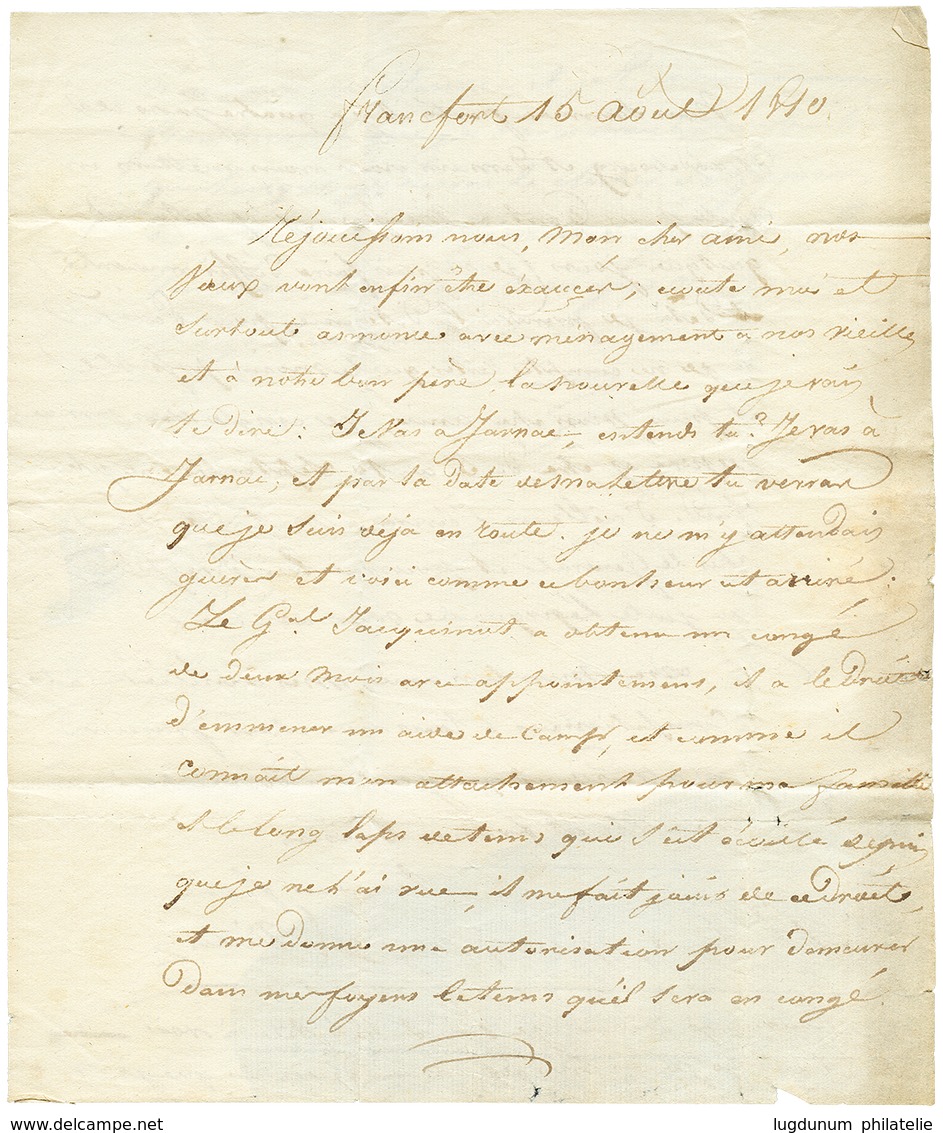 francfort 15 août 1810.
Réjouissons nous, mon cher ami, nos
vœux vont enfin être éxaucés; écoute moi et
surtout annonce avec ménagement à nos vieilles
et à notre bon père la nouvelle que je vais
te dire: Je vas à Jarnac, entends tu? Je vas à
Jarnac, et par la date de ma lettre tu verras
que je suis déjà en route. je ne m'y attendais
guères et voici comme ce bonheur est arrivé.
Le Gal Jacquinot a obtenu un congé
de deux mois avec appointemens, il a le Droit
d'emmener un aide de Camp, et comme il
connait mon attachement pour ma famille
et le long laps de tems qui s'est écoulé depuis
que je ne l'ai vue, il me fait jouir de ce Droit,
et me donne une autorisation pour demeurer
Dans mes foyers le tems qu'il sera en congé.
www.delcampe.net
lugdunum philatelie